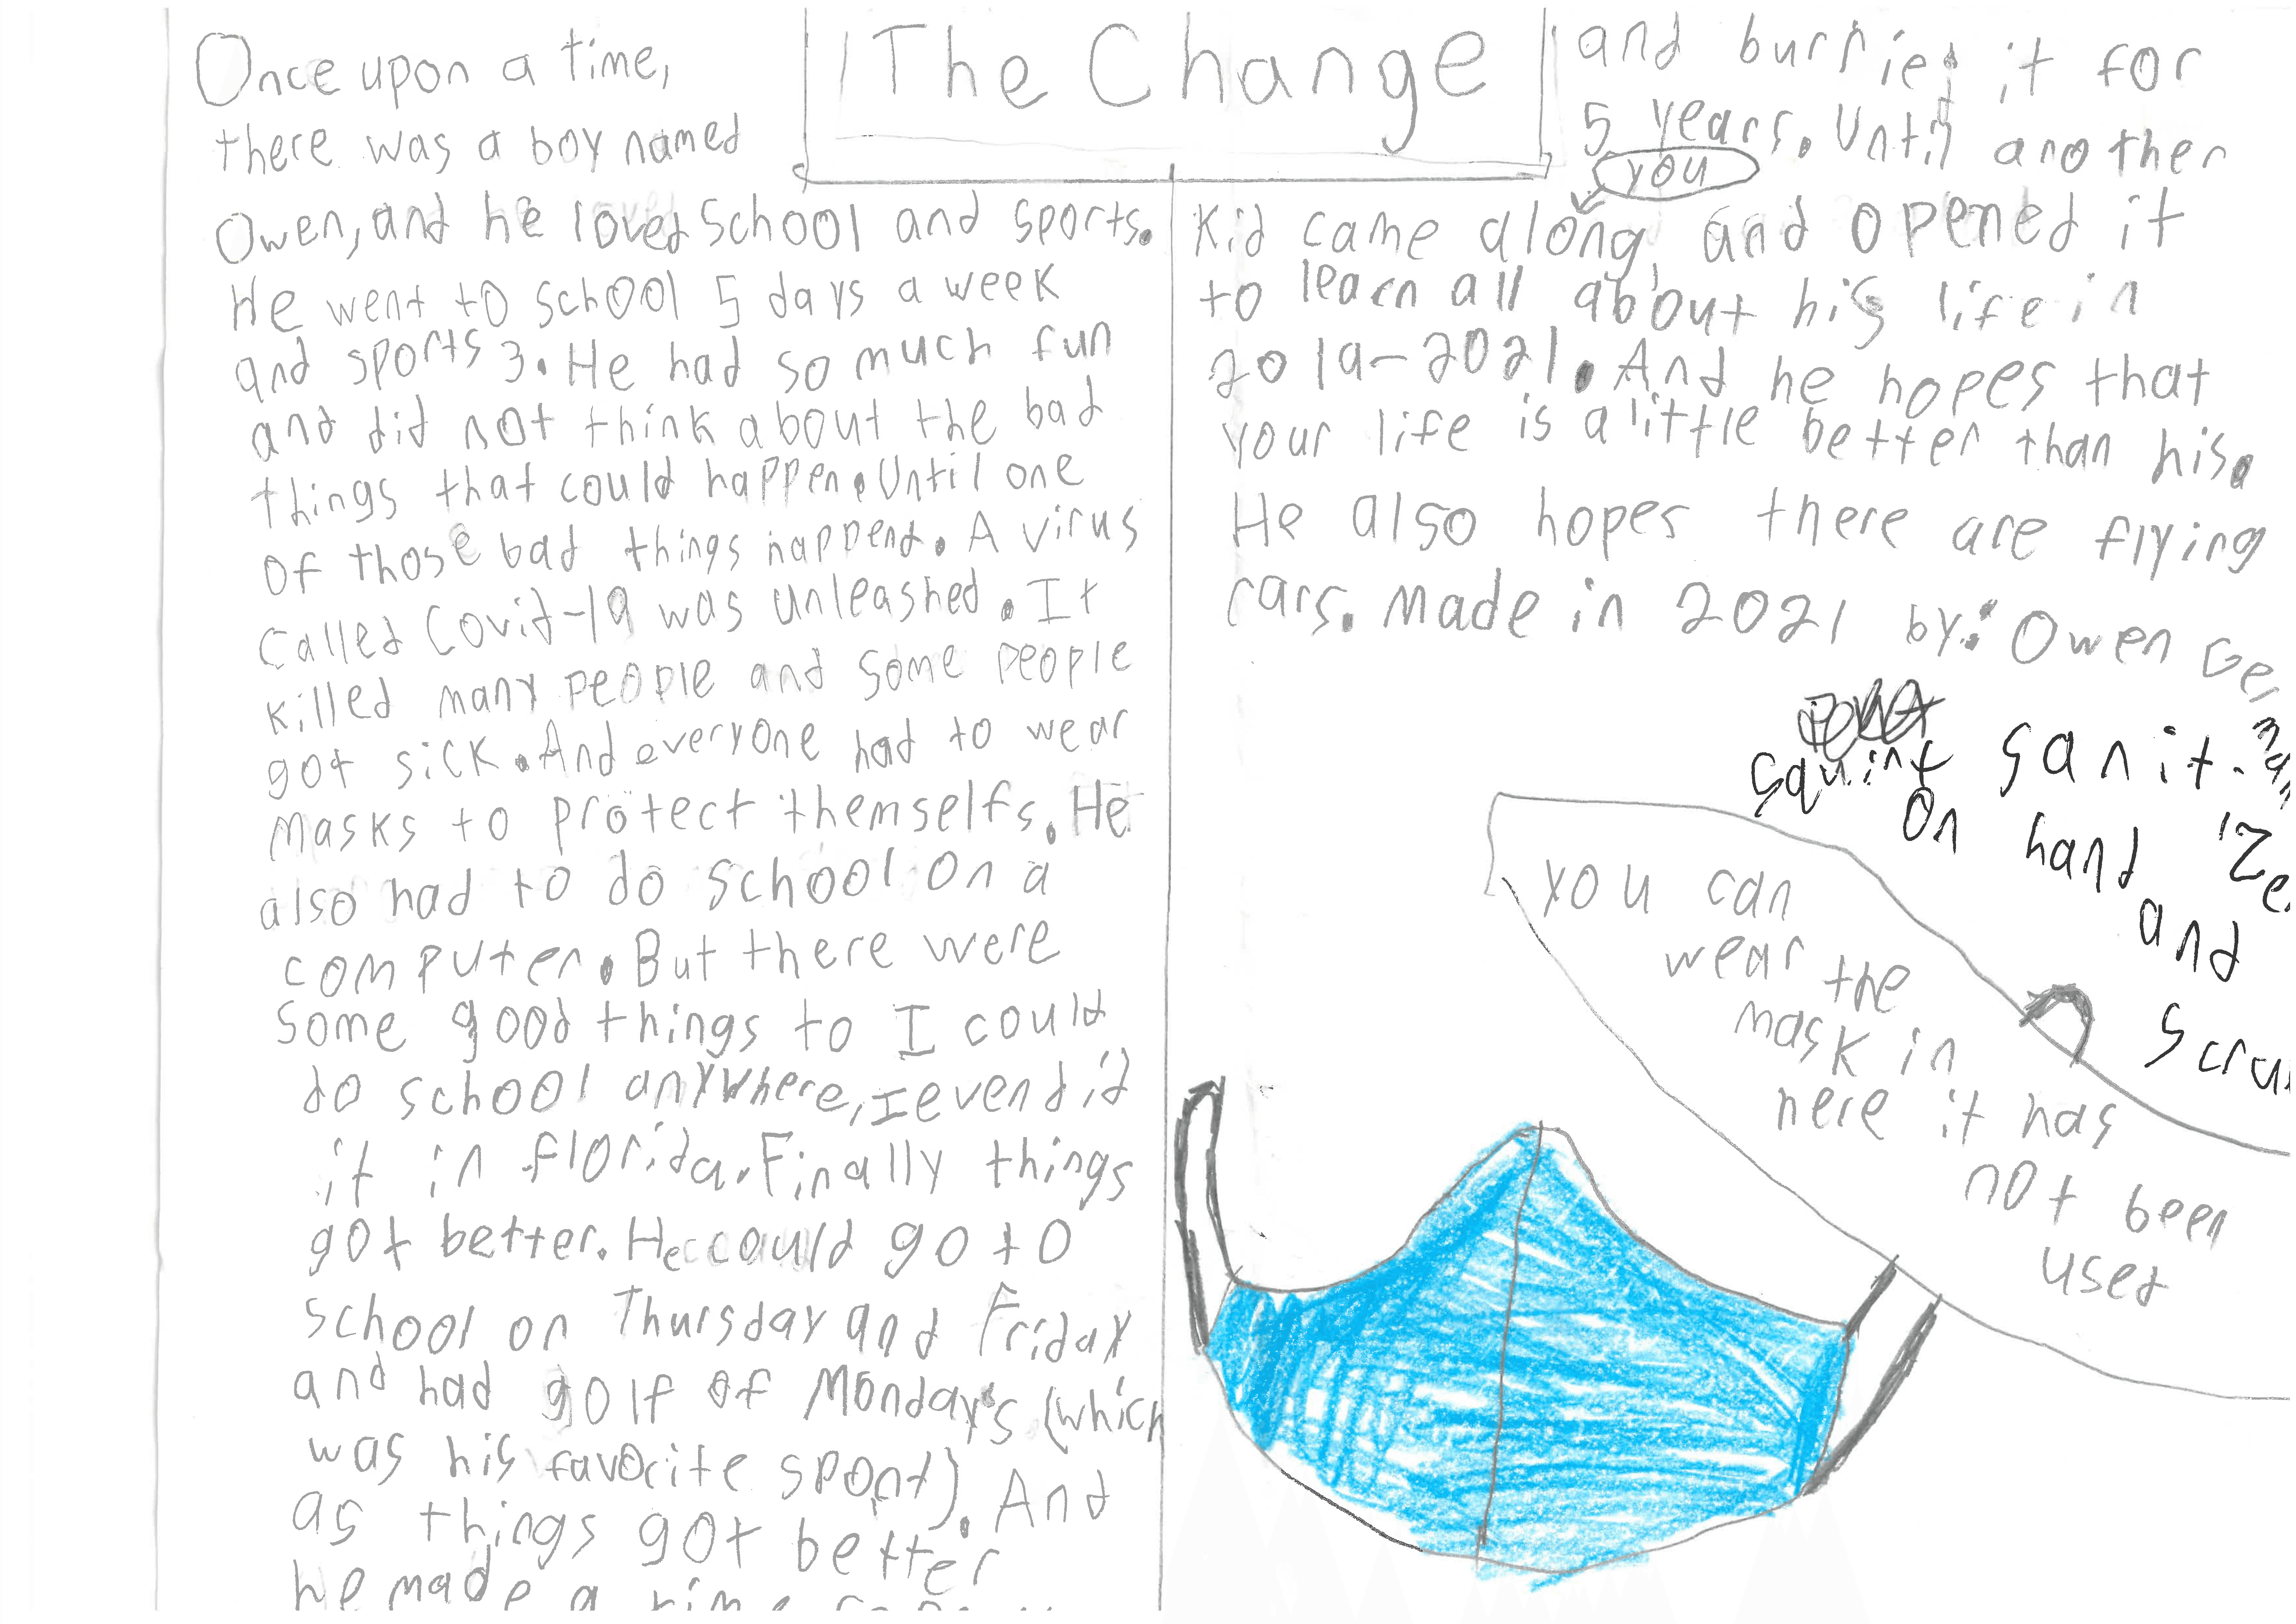 The Change
Once upon a time,
there was a boy named
Owen, and he loved school and sports.
He went to school 5 days a week
and sports 3. He had so much fun
and did not think about the bad
things that could happen. Until one
of those bad things happend. A virus
called Covid-19 was unleashed. It
killed many people and some people
got sick. And everyone had to wear
masks to protect themselfs. He
also had to do school on a
computer. But there were
some good things to I could
do school anywhere, I even did
it in florida. Finally things
got better. He could go to
school on Thursday and Friday
and had golf of Monday's (which
was his favorite spont). And
as things got better
he made a
and burried it for
5 years. Until another
you
Kid came along, and opened it
to learn all about his life in
2019-2021. And he hopes that
your life is a little better than his.
He also hopes there are flying
cars. Made in 2021 by: Owen
sanit-
on hand
and
you can
wear the
mask in
here it has
not been
used